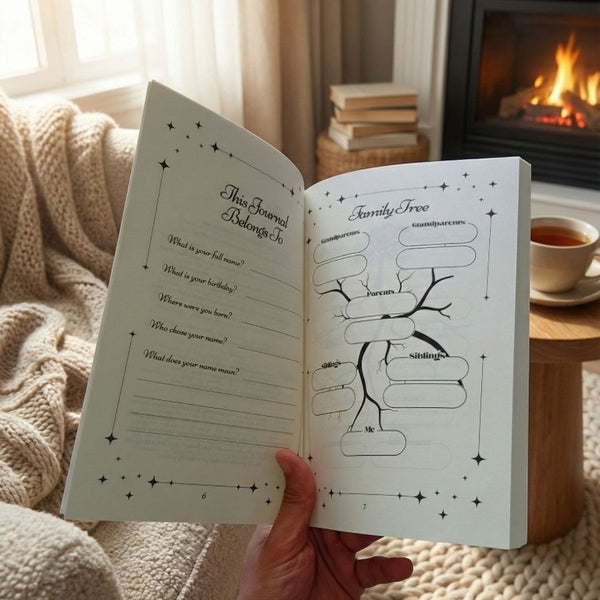 This Journal
Belongs To
What is your full name?
What is your birthday?
Where were you born?
Who chose your name?
What does your name mean?
6
Family Tree
Grandparents
Grandparents
Parents
Siblings
Siblings
Me
7